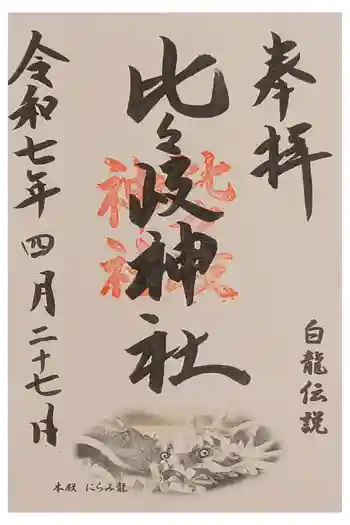 奉拝
比々岐神社
令和七年四月二十七日
白龍伝説
本殿 にらみ龍